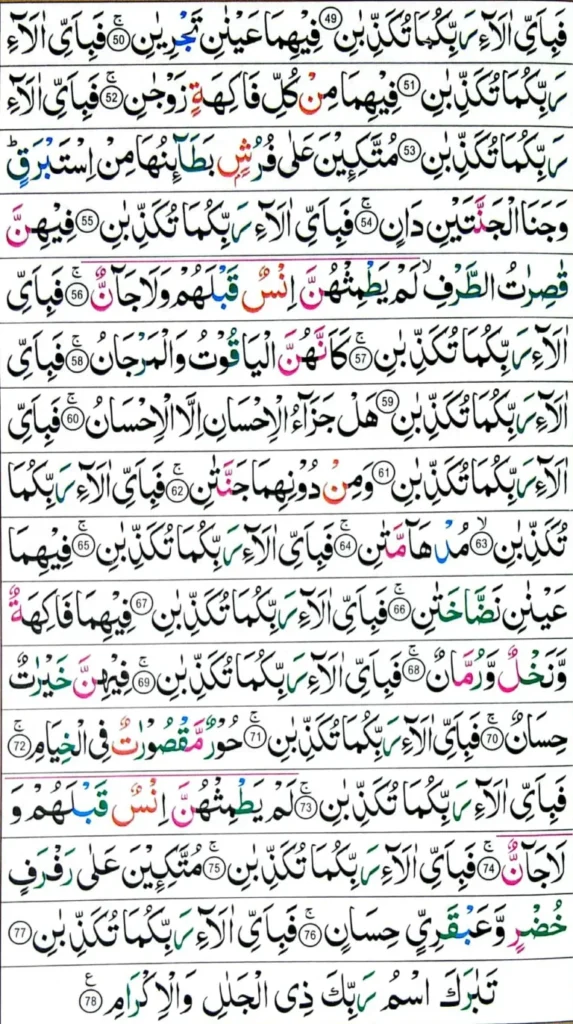 فَبِاَىِّ اٰلَآءِ رَبِّكُمَا تُكَذِّبٰنِ ۝49 فِيْهِمَا عَيْنٰنِ تَجْرِيٰنِۚ ۝50 فَبِاَىِّ اٰلَآءِ
رَبِّكُمَا تُكَذِّبٰنِ ۝51 فِيْهِمَا مِنْ كُلِّ فَاكِهَةٍ زَوْجٰنِۚ ۝52 فَبِاَىِّ اٰلَآءِ
رَبِّكُمَا تُكَذِّبٰنِ ۝53 مُتَّكِـِٕيْنَ عَلٰى فُرُشٍۭ بَطَآئِنُهَا مِنْ اِسْتَبْرَقٍؕ
وَجَنَا الْجَنَّتَيْنِ دَانٍۚ ۝54 فَبِاَىِّ اٰلَآءِ رَبِّكُمَا تُكَذِّبٰنِ ۝55 فِيْهِنَّ
قٰصِرٰتُ الطَّرْفِۙ لَمْ يَطْمِثْهُنَّ اِنْسٌ قَبْلَهُمْ وَلَا جَآنٌّۚ ۝56 فَبِاَىِّ
اٰلَآءِ رَبِّكُمَا تُكَذِّبٰنِۚ ۝57 كَاَنَّهُنَّ الْيَاقُوْتُ وَالْمَرْجَانُۚ ۝58 فَبِاَىِّ
اٰلَآءِ رَبِّكُمَا تُكَذِّبٰنِ ۝59 هَلْ جَزَآءُ الْاِحْسَانِ اِلَّا الْاِحْسَانُۚ ۝60 فَبِاَىِّ
اٰلَآءِ رَبِّكُمَا تُكَذِّبٰنِ ۝61 وَمِنْ دُوْنِهِمَا جَنَّتٰنِۚ ۝62 فَبِاَىِّ اٰلَآءِ رَبِّكُمَا
تُكَذِّبٰنِۙ ۝63 مُدْهَآمَّتٰنِۚ ۝64 فَبِاَىِّ اٰلَآءِ رَبِّكُمَا تُكَذِّبٰنِۚ ۝65 فِيْهِمَا
عَيْنٰنِ نَضَّاخَتٰنِۚ ۝66 فَبِاَىِّ اٰلَآءِ رَبِّكُمَا تُكَذِّبٰنِۚ ۝67 فِيْهِمَا فَاكِهَةٌ
وَّنَخْلٌ وَّرُمَّانٌۚ ۝68 فَبِاَىِّ اٰلَآءِ رَبِّكُمَا تُكَذِّبٰنِۚ ۝69 فِيْهِنَّ خَيْرٰتٌ
حِسَانٌۚ ۝70 فَبِاَىِّ اٰلَآءِ رَبِّكُمَا تُكَذِّبٰنِۚ ۝71 حُوْرٌ مَّقْصُوْرٰتٌ فِى الْخِيَامِۚ ۝72
فَبِاَىِّ اٰلَآءِ رَبِّكُمَا تُكَذِّبٰنِۚ ۝73 لَمْ يَطْمِثْهُنَّ اِنْسٌ قَبْلَهُمْ وَ
لَا جَآنٌّۚ ۝74 فَبِاَىِّ اٰلَآءِ رَبِّكُمَا تُكَذِّبٰنِۚ ۝75 مُتَّكِـِٕيْنَ عَلٰى رَفْرَفٍ
خُضْرٍ وَّعَبْقَرِىٍّ حِسَانٍۚ ۝76 فَبِاَىِّ اٰلَآءِ رَبِّكُمَا تُكَذِّبٰنِ ۝77
تَبٰرَكَ اسْمُ رَبِّكَ ذِى الْجَلٰلِ وَالْاِكْرَامِ ۝78 ع